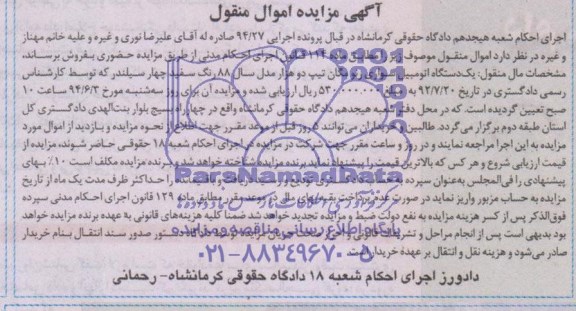 آگهی مزایده اموال منقول
اجرای احکام شعبه هیجدهم دادگاه حقوقی کرمانشاه در قبال پرونده اجرایی ۹۴/۲۷ صادره له آقای علیرضا نوری و غیره و علیه خانم مهناز
و غیره در نظر دارد اموال منقول موصوف اجرای احکام مدنی از طریق مزایده حضوری بفروش برساند.
مشخصات مال منقول: یکدستگاه اتومبیل تیپ دو هزار مدل سال ۸۸ رنگ سفید چهار سیلندر که توسط کارشناس
رسمی دادگستری در تاریخ ۹۲/۷/۲۰ به ۵۳۰/۰۰۰/۰۰۰ ریال ارزیابی شده و مزایده آن برای روز سه‌شنبه مورخ ۹۴/۶/۳ ساعت ۱۰
صبح تعیین گردیده است. که در محل دفتر شعبه هیجدهم دادگاه حقوقی کرمانشاه واقع در چهارراه بسیج بلوار بنت‌الهدی دادگستری کل
استان طبقه دوم برگزار می‌گردد. طالبین و خریداران می‌توانند روز قبل از موعد مقرر جهت اطلاع از نحوه مزایده و بازدید از اموال مورد
مزایده به این اجرا مراجعه نمایند و در روز و ساعت مقرر جهت شرکت در مزایده در اجرای احکام شعبه ۱۸ حقوقی حاضر شوند، مزایده از
قیمت ارزیابی شروع و هر کس که بالاترین قیمت را پیشنهاد نماید برنده مزایده شناخته خواهد شد و برنده مزایده مکلف است ۱۰٪ بهای
پیشنهادی را فی‌المجلس به‌عنوان سپرده را حداکثر ظرف مدت یک ماه از تاریخ
مزایده به حساب مزبور واریز نماید در صورت عدم پرداخت ۱۲۹ قانون اجرای احکام مدنی سپرده
فوق‌الذکر پس از کسر هزینه مزایده به نفع دولت ضبط و مزایده تجدید خواهد شد ضمناً کلیه هزینه‌های قانونی به عهده برنده مزایده خواهد
بود بدیهی است پس از انجام مراحل و تشریفات قانونی دستور صدور سند انتقال بنام خریدار
صادر می‌شود و هزینه نقل و انتقال بر عهده خریدار است.
دادورز اجرای احکام شعبه ۱۸ دادگاه حقوقی کرمانشاه- رحمانی
ParsNamadData
پایگاه اطلاع رسانی مناقصه و مزایده
۰۲۱-۸۸۳۴۹۶۷۰-۵